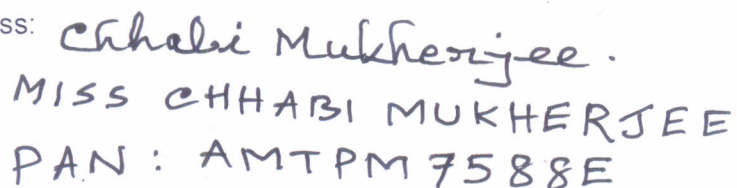 ss: Chhabi Mukherjee.
MISS CHHABI MUKHERJEE
PAN: AMTPM7588E